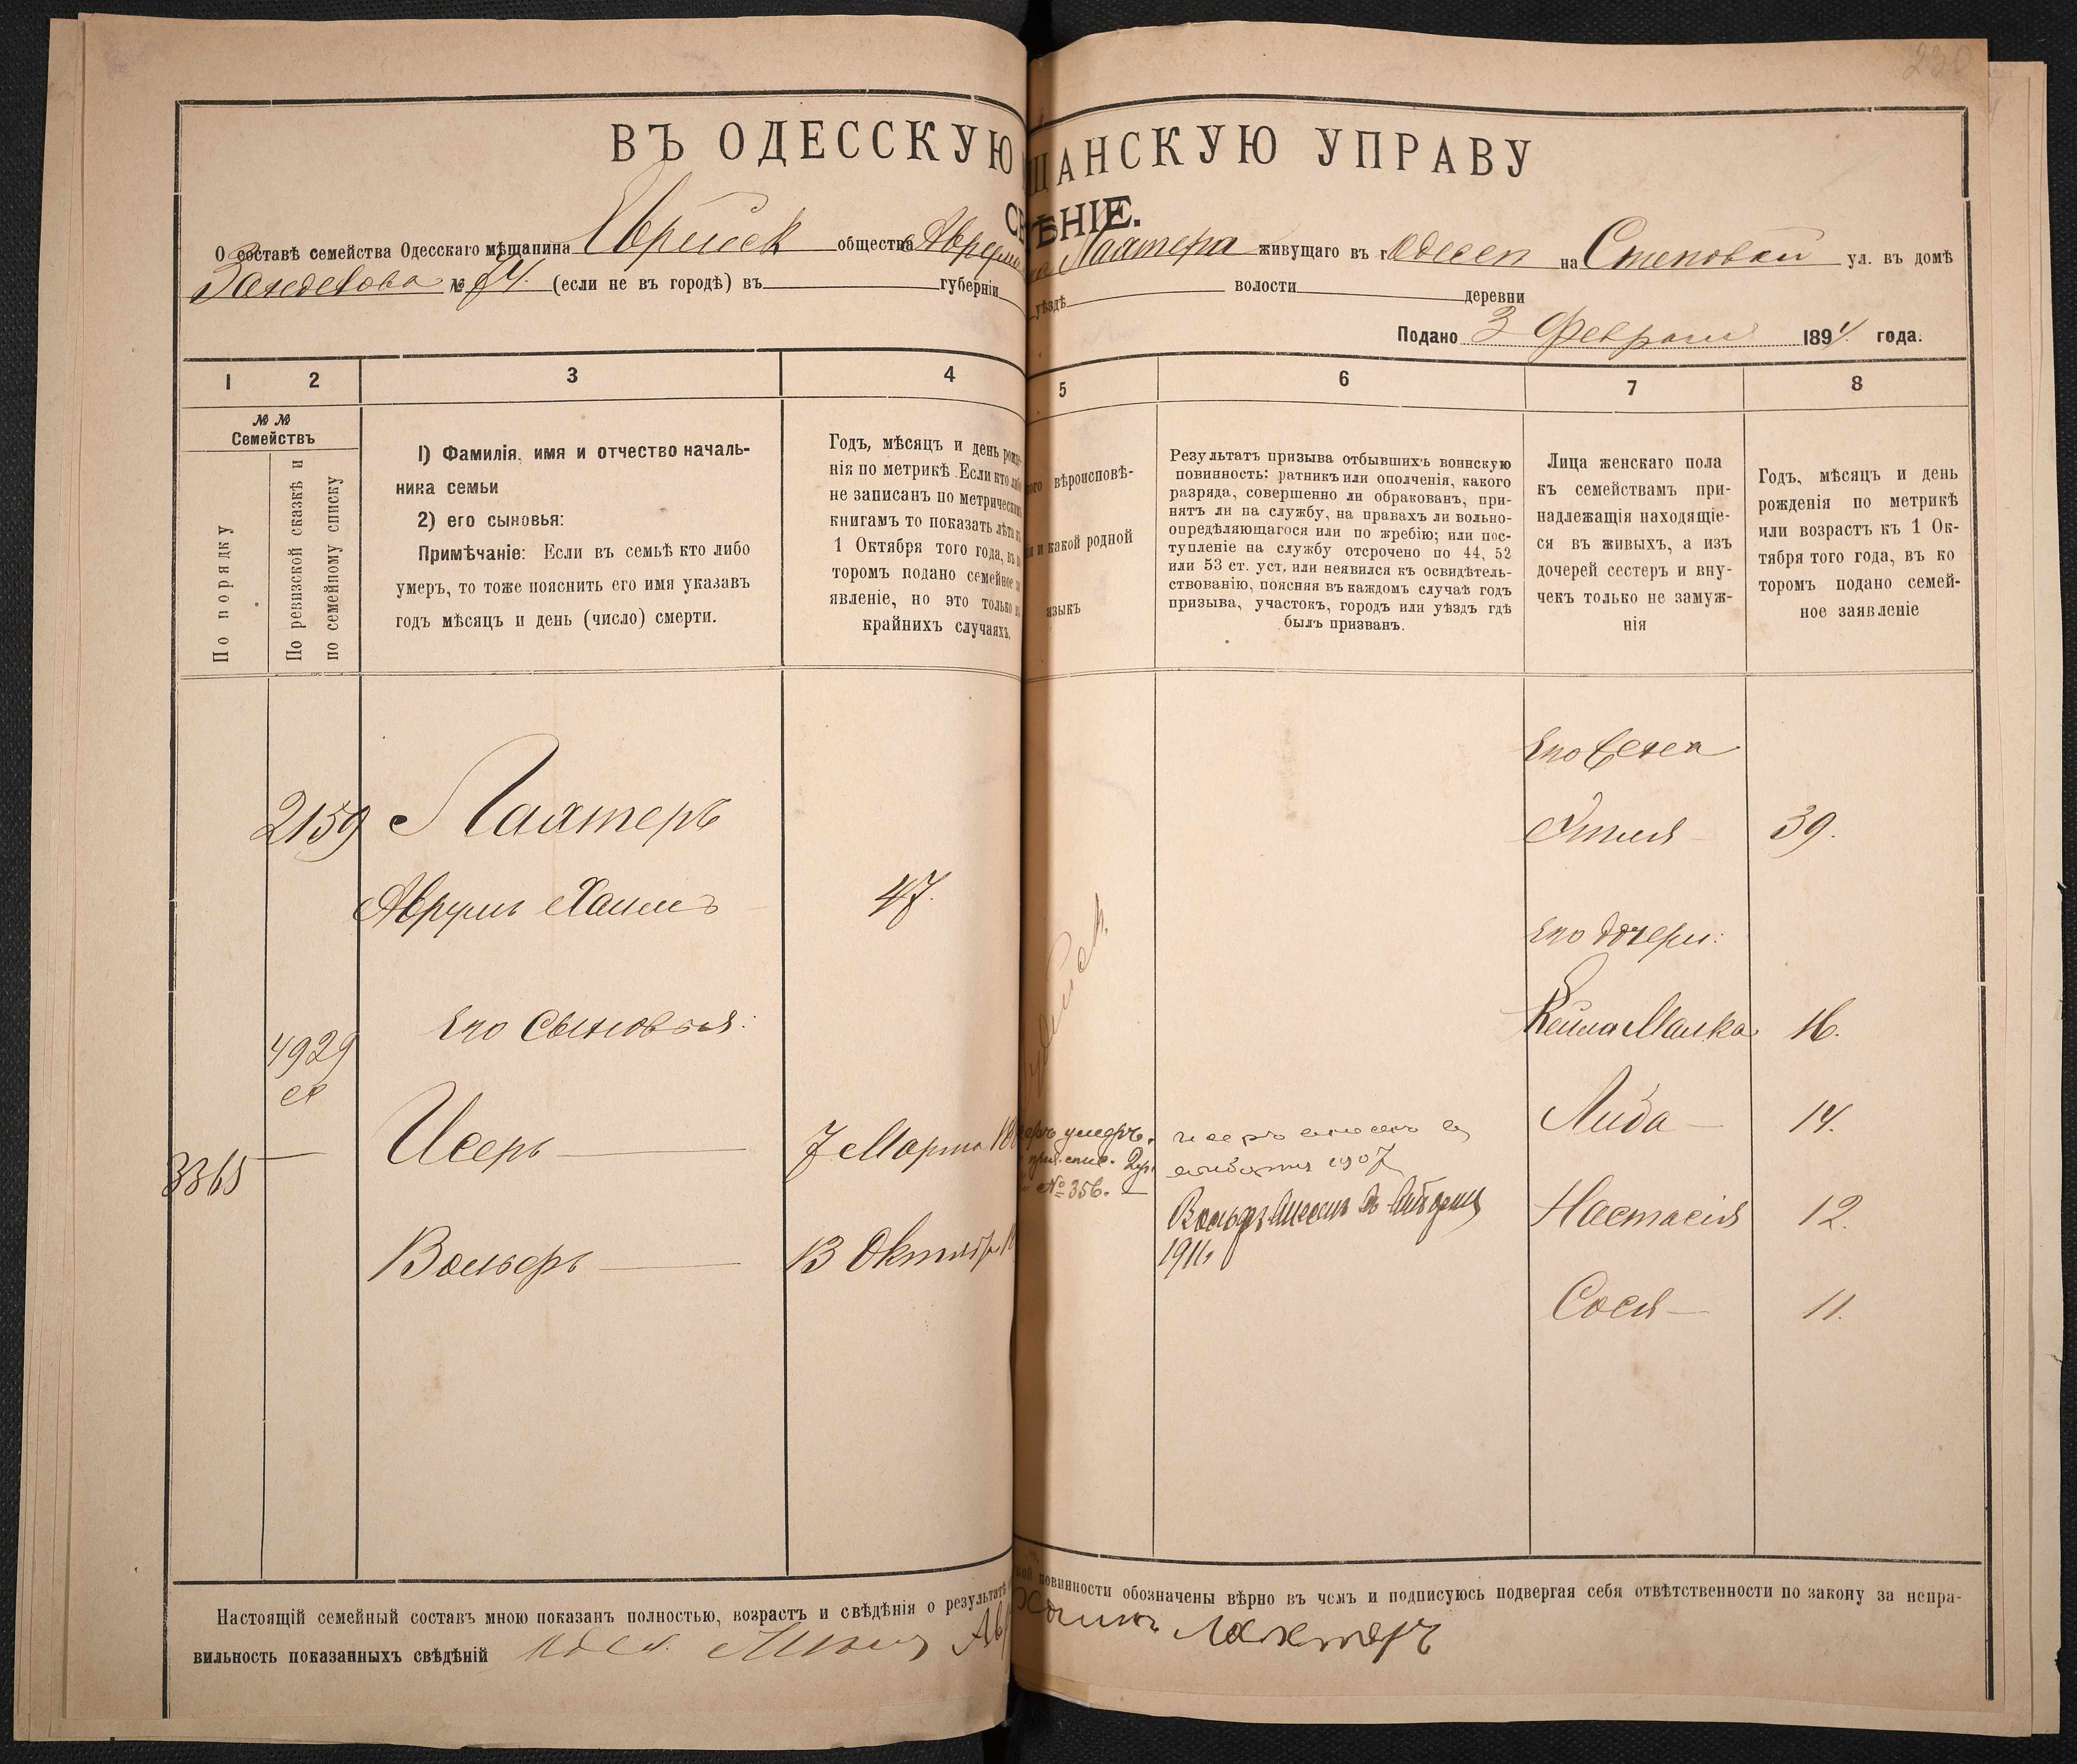 230
ВЪ ОДЕССКУЮ ЩАНСКУЮ УПРАВУ
СВ ѢНІЕ.
О составѣ семейства Одесскаго мѣщанина Еврейск общества Аврума Лахтера живущаго въ г Одессѣ на Степовой ул. въ домѣ
№ 74. (если не въ городѣ) въ губерніи уѣздѣ волости деревни
Подано 3 Февраля 1894 года.
1 2 3 4 5 6 7 8
№ №
Семействъ
По порядку
По ревизской сказкѣ и
по семейному списку
1) Фамилія, имя и отчество началь-
ника семьи
2) его сыновья:
Примѣчаніе: Если въ семьѣ кто либо
умеръ, то тоже пояснить его имя указавъ
годъ мѣсяцъ и день (число) смерти.
Годъ, мѣсяцъ и день рожде-
нія по метрикѣ. Если кто либо
не записанъ по метрическимъ
книгамъ то показать лѣта къ
1 Октября того года, въ ко
торомъ подано семейное за
явленіе, но это только въ
крайнихъ случаяхъ.
ого вѣроисповѣ-
ія и какой родной
языкъ
Результатъ призыва отбывшихъ воинскую
повинность: ратникъ или ополченія, какого
разряда, совершенно ли обракованъ, при-
нятъ ли на службу, на правахъ ли вольно-
опредѣляющагося или по жребію; или пос-
тупленіе на службу отсрочено по 44, 52
или 53 ст. уст. или неявился къ освидѣтель-
ствованію, поясняя въ каждомъ случаѣ годъ
призыва, участокъ, городъ или уѣздъ гдѣ
былъ призванъ.
Лица женскаго пола
къ семействамъ при-
надлежащія находящіе-
ся въ живыхъ, а изъ
дочерей сестеръ и вну-
чекъ только не замуж-
нія
Годъ, мѣсяцъ и день
рожденія по метрикѣ
или возрастъ къ 1 Ок-
тября того года, въ ко
торомъ подано семей-
ное заявленіе
Его жена
2159 Лахтеръ Этля 39.
Аврумъ Хаимъ 47.
Его дочери:
Его сыновья: Кейла Малка 16.
4929
Исеръ 7 Марта 18 умеръ. Либа 14.
1907
3365 № 356.
Вольфъ внесенъ въ 1911 Настасія 12.
Вольфъ 13 Октября 18
Сося 11.
Настоящій семейный составъ мною показанъ полностью, возрастъ и свѣдѣнія о результатѣ ской повинности обозначены вѣрно въ чемъ и подписуюсь подвергая себя отвѣтственности по закону за непра-
вильность показанныхъ свѣдѣній Ав Хаимъ Лахтеръ